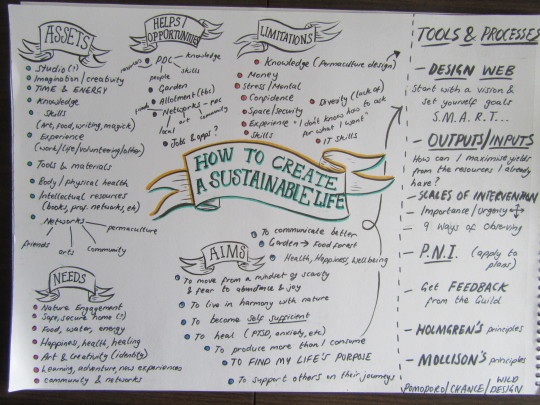 ASSETS
Studio (?)
Imagination / creativity
TIME & ENERGY
Knowledge
Skills
(Art, food, writing, magick)
Experience
(work/life/volunteering/other)
Tools & materials
Body / physical health
Intellectual resources
(books, prof. networks, etc)
Networks
friends
arts
community
permaculture
NEEDS
Nature Engagement
Safe, secure home (?)
Food, water, energy
Happiness, health, healing
Art & Creativity (identity)
Learning, adventure, new experiences
community & networks
HELPS/
OPPORTUNITIES
PDC
resources
Knowledge
skills
people
Garden
Allotment (tbc)
food
Networks - PDC
local
art
community
Jobs & apps?
LIMITATIONS
Knowledge (Permaculture design)
Money
Stress/Mental
Confidence
Space/security
Experience
Skills
Diversity (lack of)
"I don't know how to ask
for what I want"
IT skills
HOW TO CREATE
A SUSTAINABLE LIFE
AIMS
To communicate better
Garden → Food forest
Health, Happiness, Wellbeing
To move from a mindset of scarcity
& fear to abundance & joy
To live in harmony with nature
To become self sufficient
To heal (PTSD, anxiety, etc)
To produce more than I consume
TO FIND MY LIFE'S PURPOSE
To support others on their journeys
TOOLS & PROCESSES
- DESIGN WEB
Start with a vision &
set yourself goals
S.M.A.R.T...
- OUTPUTS/INPUTS
How can I maximise yields
from the resources I already
have?
- SCALES OF INTERVENTION
- Importance/Urgency
- 9 Ways of Observing
- P.N.I. (apply to
plans)
- Get FEEDBACK
from the Guild
- HOLMGREN'S principles
- MOLLISON'S principles
POMODORO/CHANCE/WILD DESIGN